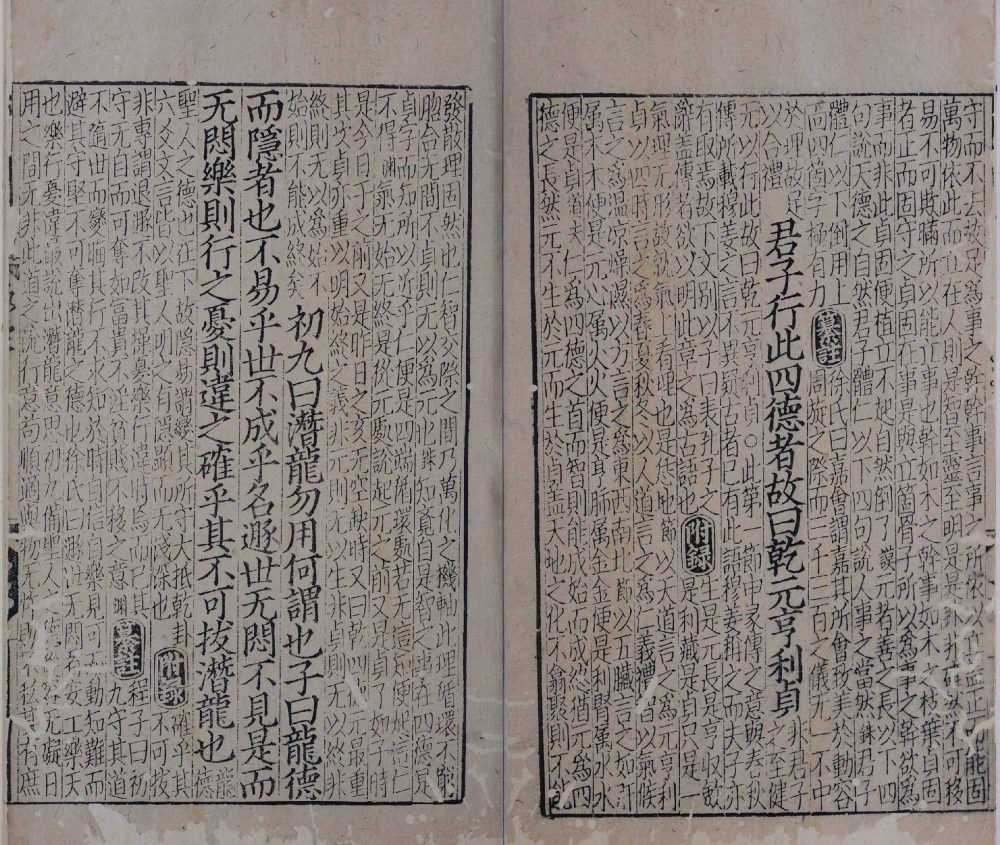 守而不去故足以為事之幹幹事言事之所依以立蓋正而能固
萬物依此而立在人則是智至靈至明是是非非確然不可移
易不可欺瞞所以能立事也幹如木之幹事如木之枝葉貞固
者正而固守之貞固在事是與立箇骨子所以為事之幹欲為
事而非此貞固便植立不起自然倒了 謨元者善之長以下四
句說天德之自然君子體仁以下四句說人事之當然 銖君子
體仁以下倒用上
高四箇字極有力
纂註
徐氏曰嘉會謂嘉其所會於動容
周旋之際而三千三百之儀无不中
於理故足
以合禮
君子行此四德者故曰乾元亨利貞
非君子之至健
无以行此故曰乾元亨利貞○此第一節中家傳之意與春秋
傳所載穆姜之言不異疑古者已有此語穆姜稱之而夫子亦
有取焉故下文別以子曰表孔子之
辭蓋傳者欲以明此章之為古語也
附錄
生是元長是亨收斂
是利藏是貞只是一
氣理无形故就氣上看理也是恁地 節以天道言之為元亨利
貞以四時言之為春夏秋冬以人道言之為仁義禮智以氣候
言之為温凉燥濕以四方言之為東西南北 節以五臟言之如肝
屬木木便是元心屬火火便是亨肺屬金金便是利腎屬水水
便是貞道夫仁為四德之首而智則能成始而成終猶元為四
德之長然元不生於元而生於貞蓋天地之化不翕聚則不能
發散理固然也仁智交際之間乃萬化之機軸此理循環不窮
脗合无間不貞則无以為元也 銖知覺自是智之事在四德是
貞字而知所以近乎仁便是四端循環處若无這知便起這仁
不得 淵氣无始无終是從元處說起元之前又是貞了如子時
是今日子之前又是昨日之亥无空缺時 又曰乾四德元最重
其次貞亦重以明終始之義非元則无以生非貞則无以終非
終則无以為始不
始則不能成終矣
初九曰潛龍勿用何謂也子曰龍德
而隱者也不易乎世不成乎名遯世无悶不見是而
无悶樂則行之憂則違之確乎其不可拔潛龍也
龍德
聖人之德也在下故隱易謂變其所守大抵乾卦
六爻文言皆以聖人明之有隱顯而无淺深也
附錄
確乎其
不可拔
非專謂退遯不改其操憂樂行違時焉而已其
守无自而可奪如富貴不淫貧賤不移之意 淵
纂註
程子曰初
九守其道
不隨世而變晦其行不求知於時自信自樂見可而動知難而
避其守堅不可奪潛龍之德也 徐氏曰遯世无悶者安土樂天
也樂行憂違最說出潛龍意思備聖人之德從容无礙日
用之間无非此道之流行意苟順適與物无發見有庶